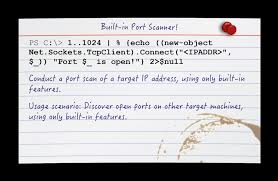 Built-in Port Scanner!
PS C:\> 1..1024 | % {echo ((new-object
Net.Sockets.TcpClient).Connect("<IPADDR>",
$_)) "Port $_ is open!"} 2>$null
Conduct a port scan of a target IP address, using only built-in
features.
Usage scenario: Discover open ports on other target machines,
using only built-in features.